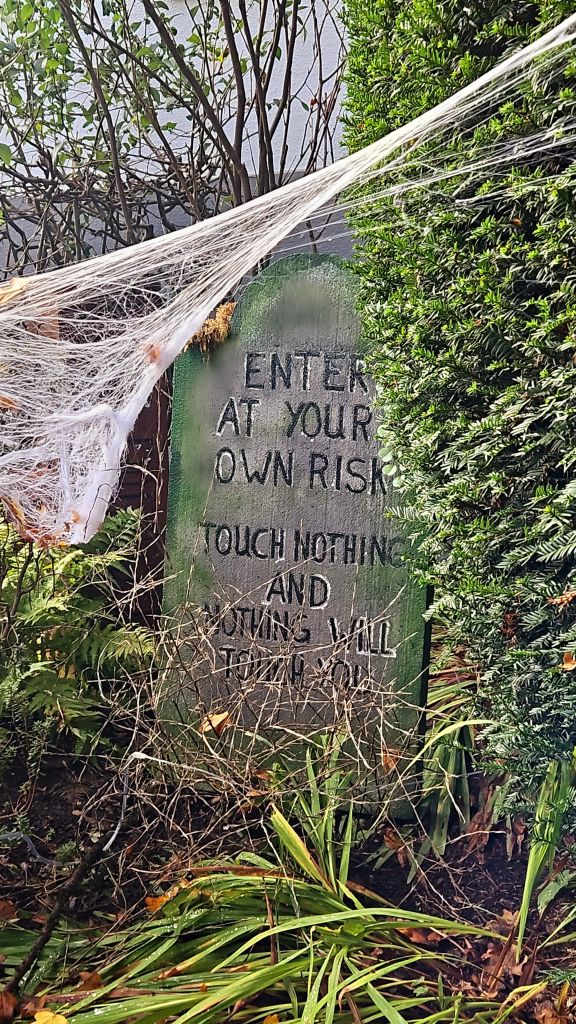 ENTER
AT YOUR
OWN RISK
TOUCH NOTHING
AND
NOTHING WILL
TOUCH YOU